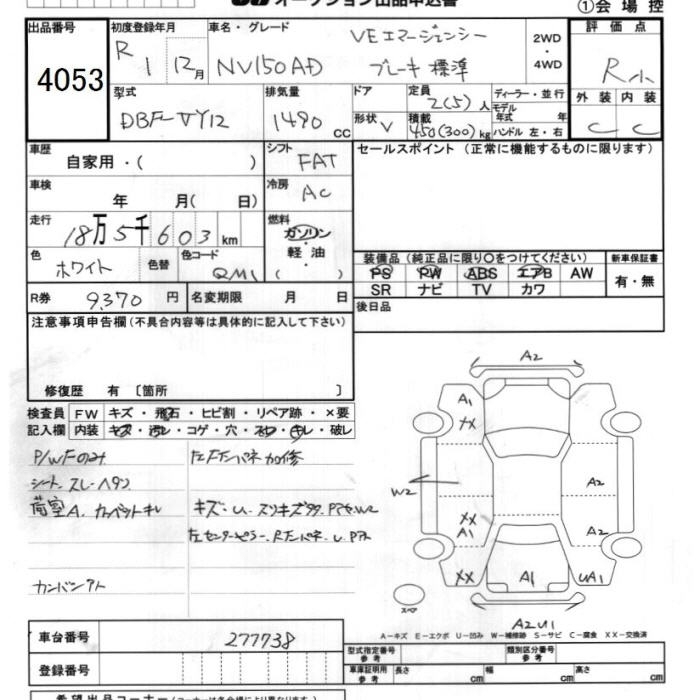 オークション出品申込書
①会場控
出品番号
4053
初度登録年月
R 1 12月
車名・グレード
NV150AD
VEエマージェンシー
ブレーキ標準
2WD
・
4WD
評価点
R
外装 内装
C C
型式
DBF-VY12
排気量
1490 cc
ドア
定員
2(5)人
ディーラー・並行
モデル年式 年
形状
V
積載
450(300)kg
ハンドル 左・右
車歴
自家用・( )
シフト
FAT
セールスポイント (正常に機能するものに限ります)
車検
年 月( 日)
冷房
AC
走行
18万5千603km
燃料
ガソリン
・
軽油
( )
色
ホワイト
色替
色コード
QM1
装備品(純正品に限り○をつけてください)
PS PW ABS エアB AW
SR ナビ TV カワ
新車保証書
有・無
R券 9,370円
名変期限 月 日
後日品
注意事項申告欄(不具合内容等は具体的に記入して下さい)
修復歴 有 〔箇所 〕
検査員
記入欄
FW キズ・飛石・ヒビ割・リペア跡・×要
内装 キズ・汚レ・コゲ・穴・スレ・キレ・破レ
P/WFのみ
シート スレ ヘタリ
荷室A カーペットキレ
カンバンアト
左Fインパネ加修
A2
A1
XX
W2
XX
A1
XX
A1
A2
A2
UA1
A2U1
スペア
A-キズ E-エクボ U-凹み W-補修跡 S-サビ C-腐食 XX-交換済
車台番号 277738
登録番号
型式指定番号 参考
類別区分番号 参考
車庫証明用 参考
長さ cm
幅 cm
高さ cm
希望出品コーナー